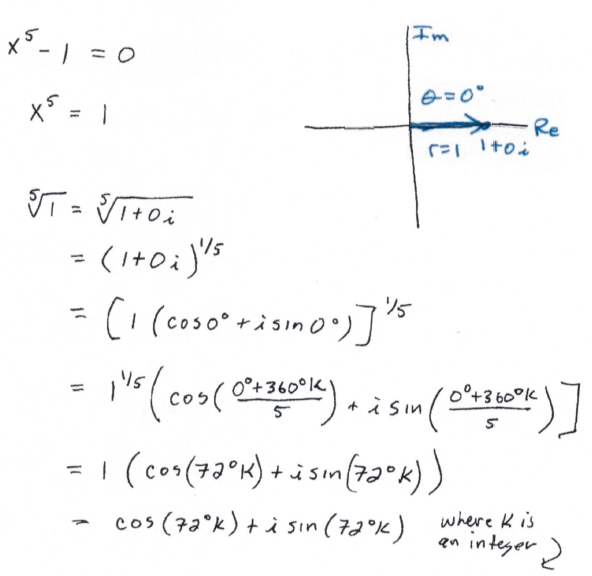 x⁵ - 1 = 0
x⁵ = 1
Im
θ = 0°
Re
r=1 1+0i
⁵√1 = ⁵√1+0i
= (1+0i)^1/5
= [1 (cos0° + i sin 0°)]^1/5
= 1^1/5 (cos(0°+360°K/5) + i sin(0°+360°K/5)]
= 1 (cos(72°K) + i sin(72°K))
= cos(72°K) + i sin(72°K) where K is
an integer